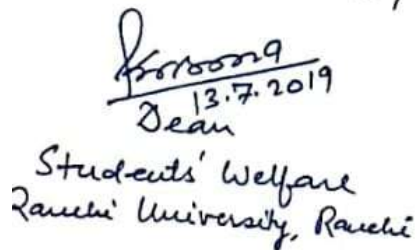 13.7.2019
Dean
Students' Welfare
Ranchi University, Ranchi